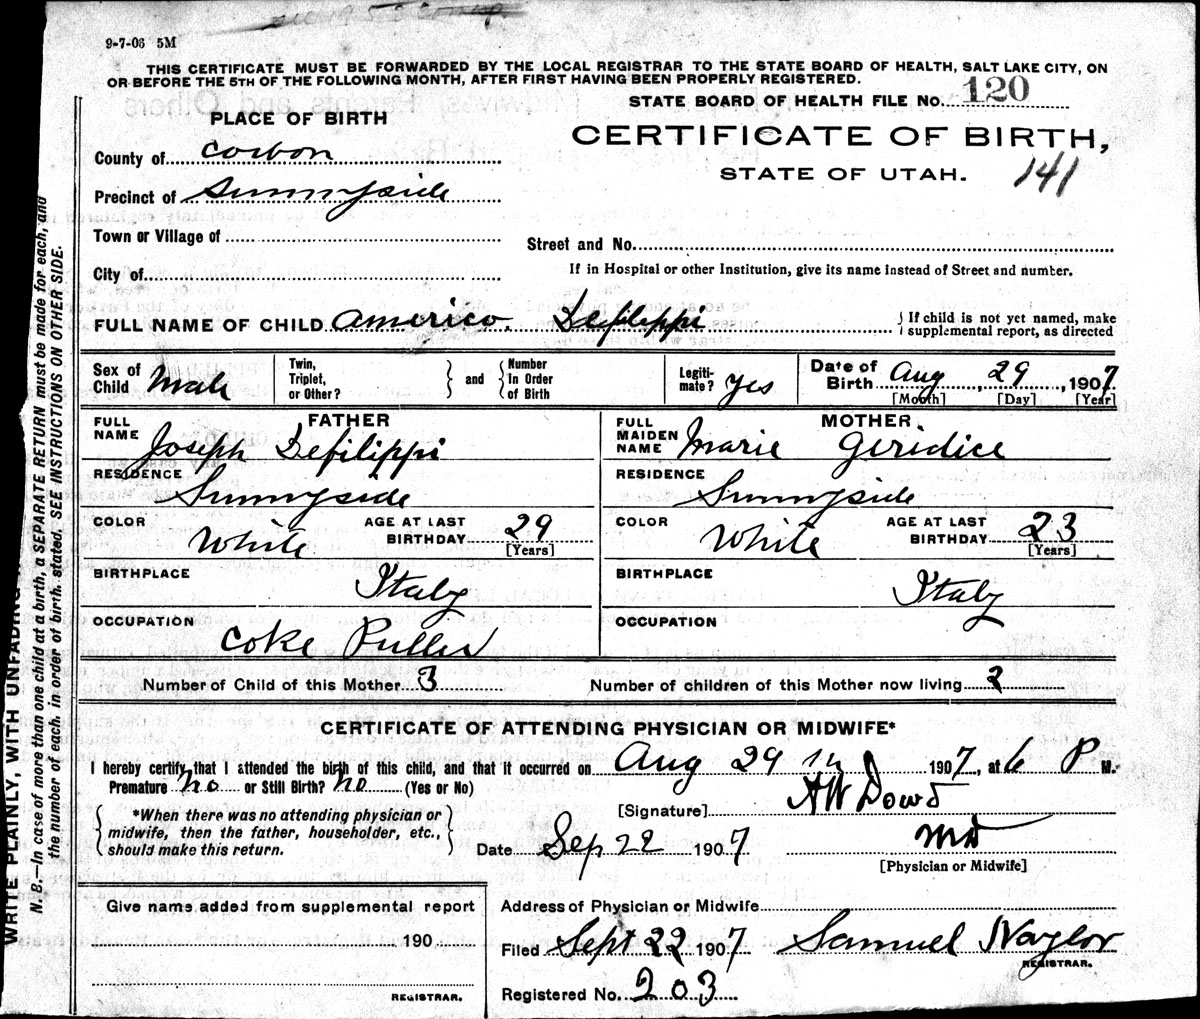 9-7-06 5M
THIS CERTIFICATE MUST BE FORWARDED BY THE LOCAL REGISTRAR TO THE STATE BOARD OF HEALTH, SALT LAKE CITY, ON
OR BEFORE THE 5TH OF THE FOLLOWING MONTH, AFTER FIRST HAVING BEEN PROPERLY REGISTERED.
STATE BOARD OF HEALTH FILE No. 120
PLACE OF BIRTH
CERTIFICATE OF BIRTH,
County of Carbon
STATE OF UTAH. 141
Precinct of Sunnyside
Town or Village of
Street and No.
City of
If in Hospital or other Institution, give its name instead of Street and number.
FULL NAME OF CHILD Americo. Defilippi { If child is not yet named, make supplemental report, as directed
Sex of Child Male
Twin, Triplet, or Other? } and { Number in Order of Birth
Legiti-mate? Yes
Date of Birth Aug, 29, 1907
[Month] [Day] [Year]
FATHER
FULL NAME Joseph Defilippi
MOTHER.
FULL MAIDEN NAME Marie Geridice
RESIDENCE Sunnyside
RESIDENCE Sunnyside
COLOR White AGE AT LAST BIRTHDAY 29 [Years]
COLOR White AGE AT LAST BIRTHDAY 23 [Years]
BIRTHPLACE Italy
BIRTHPLACE Italy
OCCUPATION Coke Puller
OCCUPATION
Number of Child of this Mother 3
Number of children of this Mother now living 2
CERTIFICATE OF ATTENDING PHYSICIAN OR MIDWIFE*
I hereby certify that I attended the birth of this child, and that it occurred on Aug 29 1907, at 6 P M.
Premature no or Still Birth? no (Yes or No)
[Signature] AW Dowd
*When there was no attending physician or
midwife, then the father, householder, etc.,
should make this return.
Date Sep 22 1907 MD
[Physician or Midwife]
Give name added from supplemental report
190
REGISTRAR.
Address of Physician or Midwife
Filed Sept 22 1907 Samuel Naylor
REGISTRAR.
Registered No. 203
WRITE PLAINLY, WITH UNFADING
N. B.—In case of more than one child at a birth, a SEPARATE RETURN must be made for each, and
the number of each, in order of birth, stated. SEE INSTRUCTIONS ON OTHER SIDE.